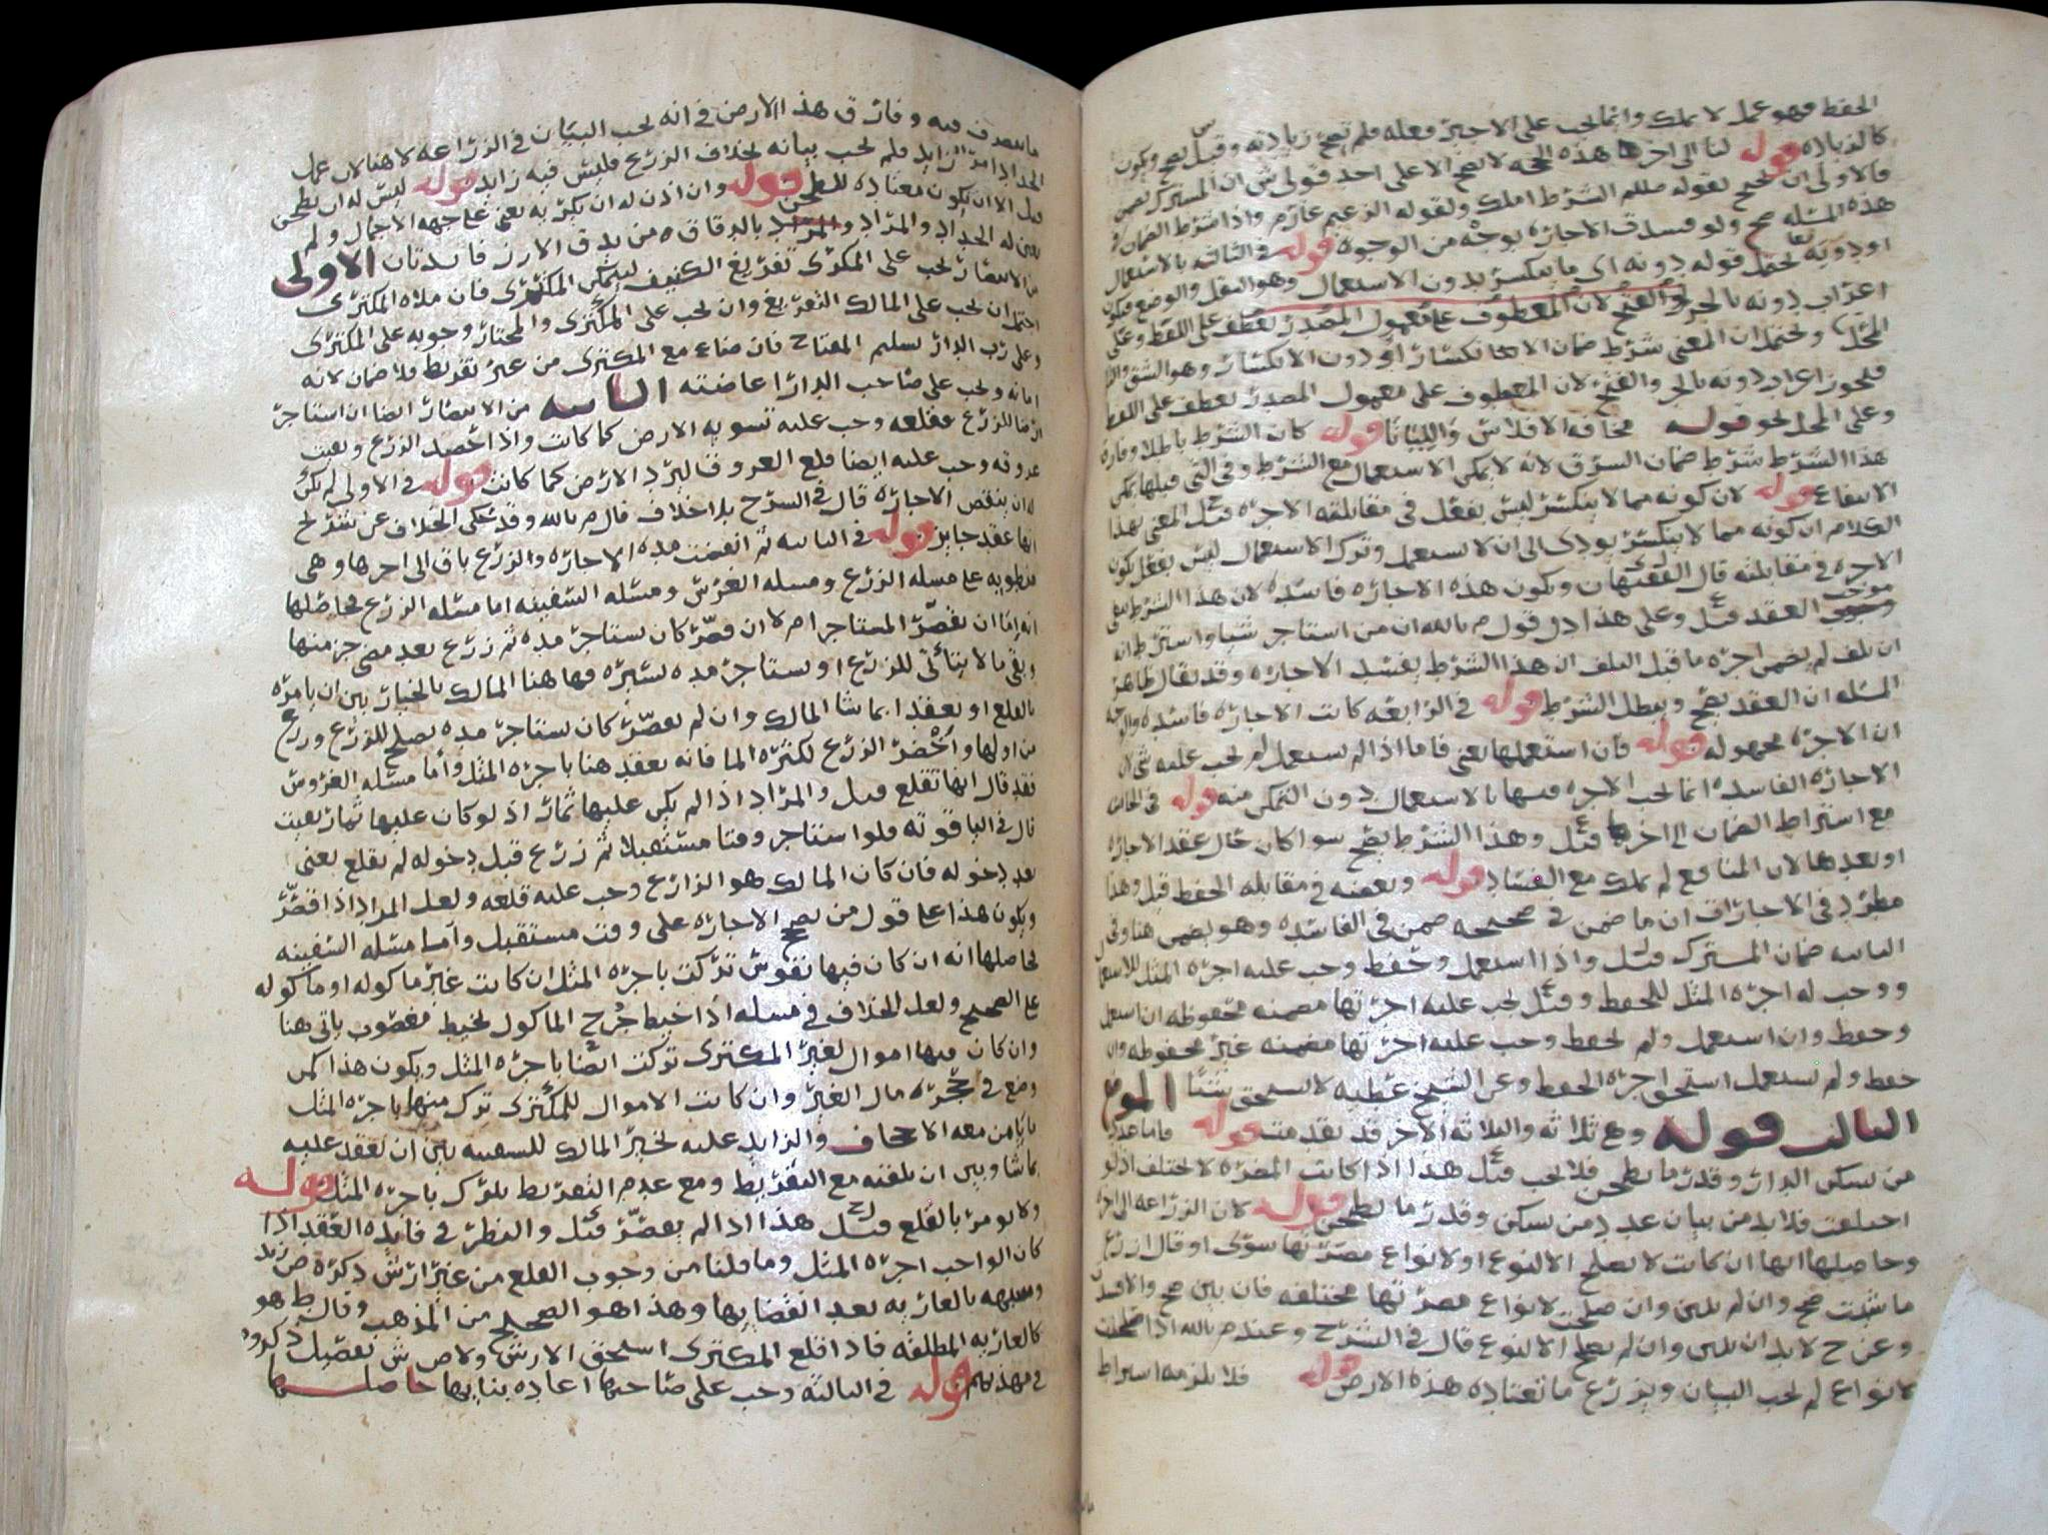 الحفظ فهو عمل لا يملك وانما يجب على الاجير فعله فلم تصح زيادته وقيل يصح ويكون
كالزيادة قوله لنا الى اخرها هذه الحجه لا تصح الا على احد قولي ش ان المشترك يضمن
فالاولى ان يحتج بقوله صللم الشرط املك ولقوله الزعيم غارم واذا شرط الضمان في
هذه المسله صح ولو فسدت الاجاره بوجه من الوجوه قوله في الثالثه بالاستعمال
او دونه يحتمل قوله دونه اي ما ينكسر بدون الاستعمال وهو النقل والوضع فيكون
اعراب دونه بالجر والفتح لان المعطوف على معمول المصدر يعطف على اللفظ وعلى
المحل ويحتمل ان المعنى شرط ضمان الانكسار او دون الانكسار وهو الشق
فيجوز اعراب دونه بالجر والفتح لان المعطوف على معمول المصدر يعطف على اللفظ
وعلى المحل نحو قوله مخافه الافلاس والليانا قوله كان الشرط باطلا وفارق
هذا الشرط شرط ضمان السرق لانه لا يمكن الاستعمال مع الشرط وفي التي قبلها يمكن
الانتفاع قوله لان كونه مما لا ينكسر ليس بفعل في مقابلته الاجره قيل المعنى بهذا
الكلام ان كونه مما لا ينكسر يودي الى ان لا يستعمل وترك الاستعمال ليس بفعل يكون
الاجره في مقابلته قال الفقيهان ويكون هذه الاجاره فاسده لان هذا الشرط
موجب العقد قيل وعلى هذا دل قول م بالله ان من استاجر شيا واشترط انه
ان تلف لم يضمن اجره ما قبل التلف ان هذا الشرط يفسد الاجاره وقد يقال ظاهر
المسله ان العقد يصح ويبطل الشرط قوله في الرابعه كانت الاجاره فاسده
ان الاجره مجهوله قوله فان استعملها يعني فاما اذا لم يستعمل لم يجب عليه شي لان
الاجاره الفاسده انما يجب الاجره فيها بالاستعمال دون التمكن منه قوله في
مع اشتراط الضمان الى اخرها قيل وهذا الشرط يصح سوا كان حال عقد الاجاره
او بعدها لان المنافع لم تملك مع الفساد قوله وبعضه في مقابله الحفظ قيل وهذا
مطرد في الاجارات ان ما ضمن في صحيحه ضمن في الفاسده وهو يضمن هنا وفي
الثانيه ضمان المشترك قيل واذا استعمل وحفظ وجب عليه اجره المثل للاستعمال
ووجب له اجره المثل للحفظ وقيل يجب عليه اجرتها مضمنه محفوظه ان استعمل
وحفظ وان استعمل ولم يحفظ وجب عليه اجرتها مضمنه غير محفوظه وان
حفظ ولم يستعمل استحق اجره الحفظ وعن الشيخ عطيه لا يستحق شيئا الموضع
الثالث قوله وهي ثلاثه والثلاثه الاخر قد تقدمت قوله فاما عدد
من يسكن الدار وقدر ما يطحن فلا يجب قيل هذا اذا كانت المضره لا تختلف اذ لو
اختلفت فلا بد من بيان عدد من يسكن وقدر ما يطحن قوله كان الزراعه الى اخره
وحاصلها انها ان كانت لا تصلح الا لنوع او لانواع مضرتها سوى او قال ازرع
ما شيت صح وان لم يبين وان صلحت لانواع مضرتها مختلفه فان بين صح والا فسد
وعن ح لا بد ان يبين وان لم يصلح الا لنوع قال في الشرح وعند م بالله اذا صلحت
لانواع لم يجب البيان ويزرع ما تعتاده هذه الارض قوله فلا يلزمه اشتراط
ما يتصرف فيه وفارق هذا الارض في انه يجب البيان في الزراعه لا هنا لان عمل
الحداد امر زايد فلم يجب بيانه بخلاف الزرع فليس فيه زايد قوله ليس له ان يطحن
قيل الا ان يكون معتاده للطحن قوله وان اذن له ان يكريه يعني على جهه الاجمال ولم
يبين له الحداد والمراد بالدقاق من يدق الارز فايدتان الاولى
من الانتصار يجب على المكري تفريغ الكنيف ليتمكن المكتري فان ملاه المكتري
احتمل ان يجب على المالك التفريغ وان يجب على المكتري والمختار وجوبه على المكتري
وعلى رب الدار تسليم المفتاح فان ضاع مع المكتري من غير تفريط فلا ضمان لانه
امانه ويجب على صاحب الدار اعاضته الثانيه من الانتصار ايضا ان استاجر
ارضا للزرع فقلعه وجب عليه تسويه الارض كما كانت واذا احصد الزرع وبقيت
عروقه وجب عليه ايضا قلع العروق ليرد الارض كما كانت قوله في الاولى لم يكن
له ان ينقض الاجاره قال في الشرح بلا خلاف قال م بالله وقد حكى الخلاف عن شريح
انها عقد جايز قوله في الثانيه ثم انقضت مده الاجاره والزرع باق الى اخرها وهي
منطويه على مسله الزرع ومسله الغرس ومسله السفينه اما مسله الزرع فحاصلها
انه اما ان يقصر المستاجر ام لا ان قصر كان يستاجر مده ثم زرع بعد مضي جز منها
وبقي ما لا يتاتى للزرع او يستاجر مده يسيره فهاهنا المالك بالخيار بين ان يامره
بالقلع او يعقد بما شا المالك وان لم يقصر كان يستاجر مده تصلح للزرع وزرع
من اولها واخضر الزرع لكثره الما فانه يعقد هنا باجره المثل واما مسله الغروس
فقد قال انها تقلع قيل والمراد اذا لم يكن عليها ثمار اذ لو كان عليها ثمار بقيت
قال في الياقوته فلو استاجر وقتا مستقبلا ثم زرع قبل دخوله لم يقلع يعني
بعد دخوله فان كان المالك هو الزارع وجب عليه قلعه ولعل المراد اذا قصر
ويكون هذا على قول من يصحح الاجاره على وقت مستقبل واما مسله السفينه
فحاصلها انه ان كان فيها نفوس تركت باجره المثل ان كانت غير ماكوله او ماكوله
على الصحيح ولعل الخلاف في مسله اذا خيط جرح الماكول بخيط مغصوب ياتي هنا
وان كان فيها اموال لغير المكتري تركت ايضا باجره المثل ويكون هذا كمن
وضع في حجره مال الغير وان كانت الاموال للمكتري ترك منها باجره المثل
ما يامن معه الاجحاف والزايد عليه يخير المالك للسفينه بين ان يعقد عليه
بما شا وبين ان يلقيه مع التفريط ومع عدم التفريط يترك باجره المثل قوله
ولا يومر بالقلع قيل ح هذا اذا لم يقصر قيل والنظر في فايده العقد اذا
كان الواجب اجره المثل وما قلنا من وجوب القلع من غير ارش ذكره ض زيد
وشبهه بالعاريه بعد انقضايها وهذا هو الصحيح من المذهب وقال ط هو
كالعاريه المطلقه فاذا قلع المكتري استحق الارش ولاص ش تفصيل ذكروه
في مهذبهم قوله في الثالثه وجب على صاحبها اعاده بنايها حاصلها